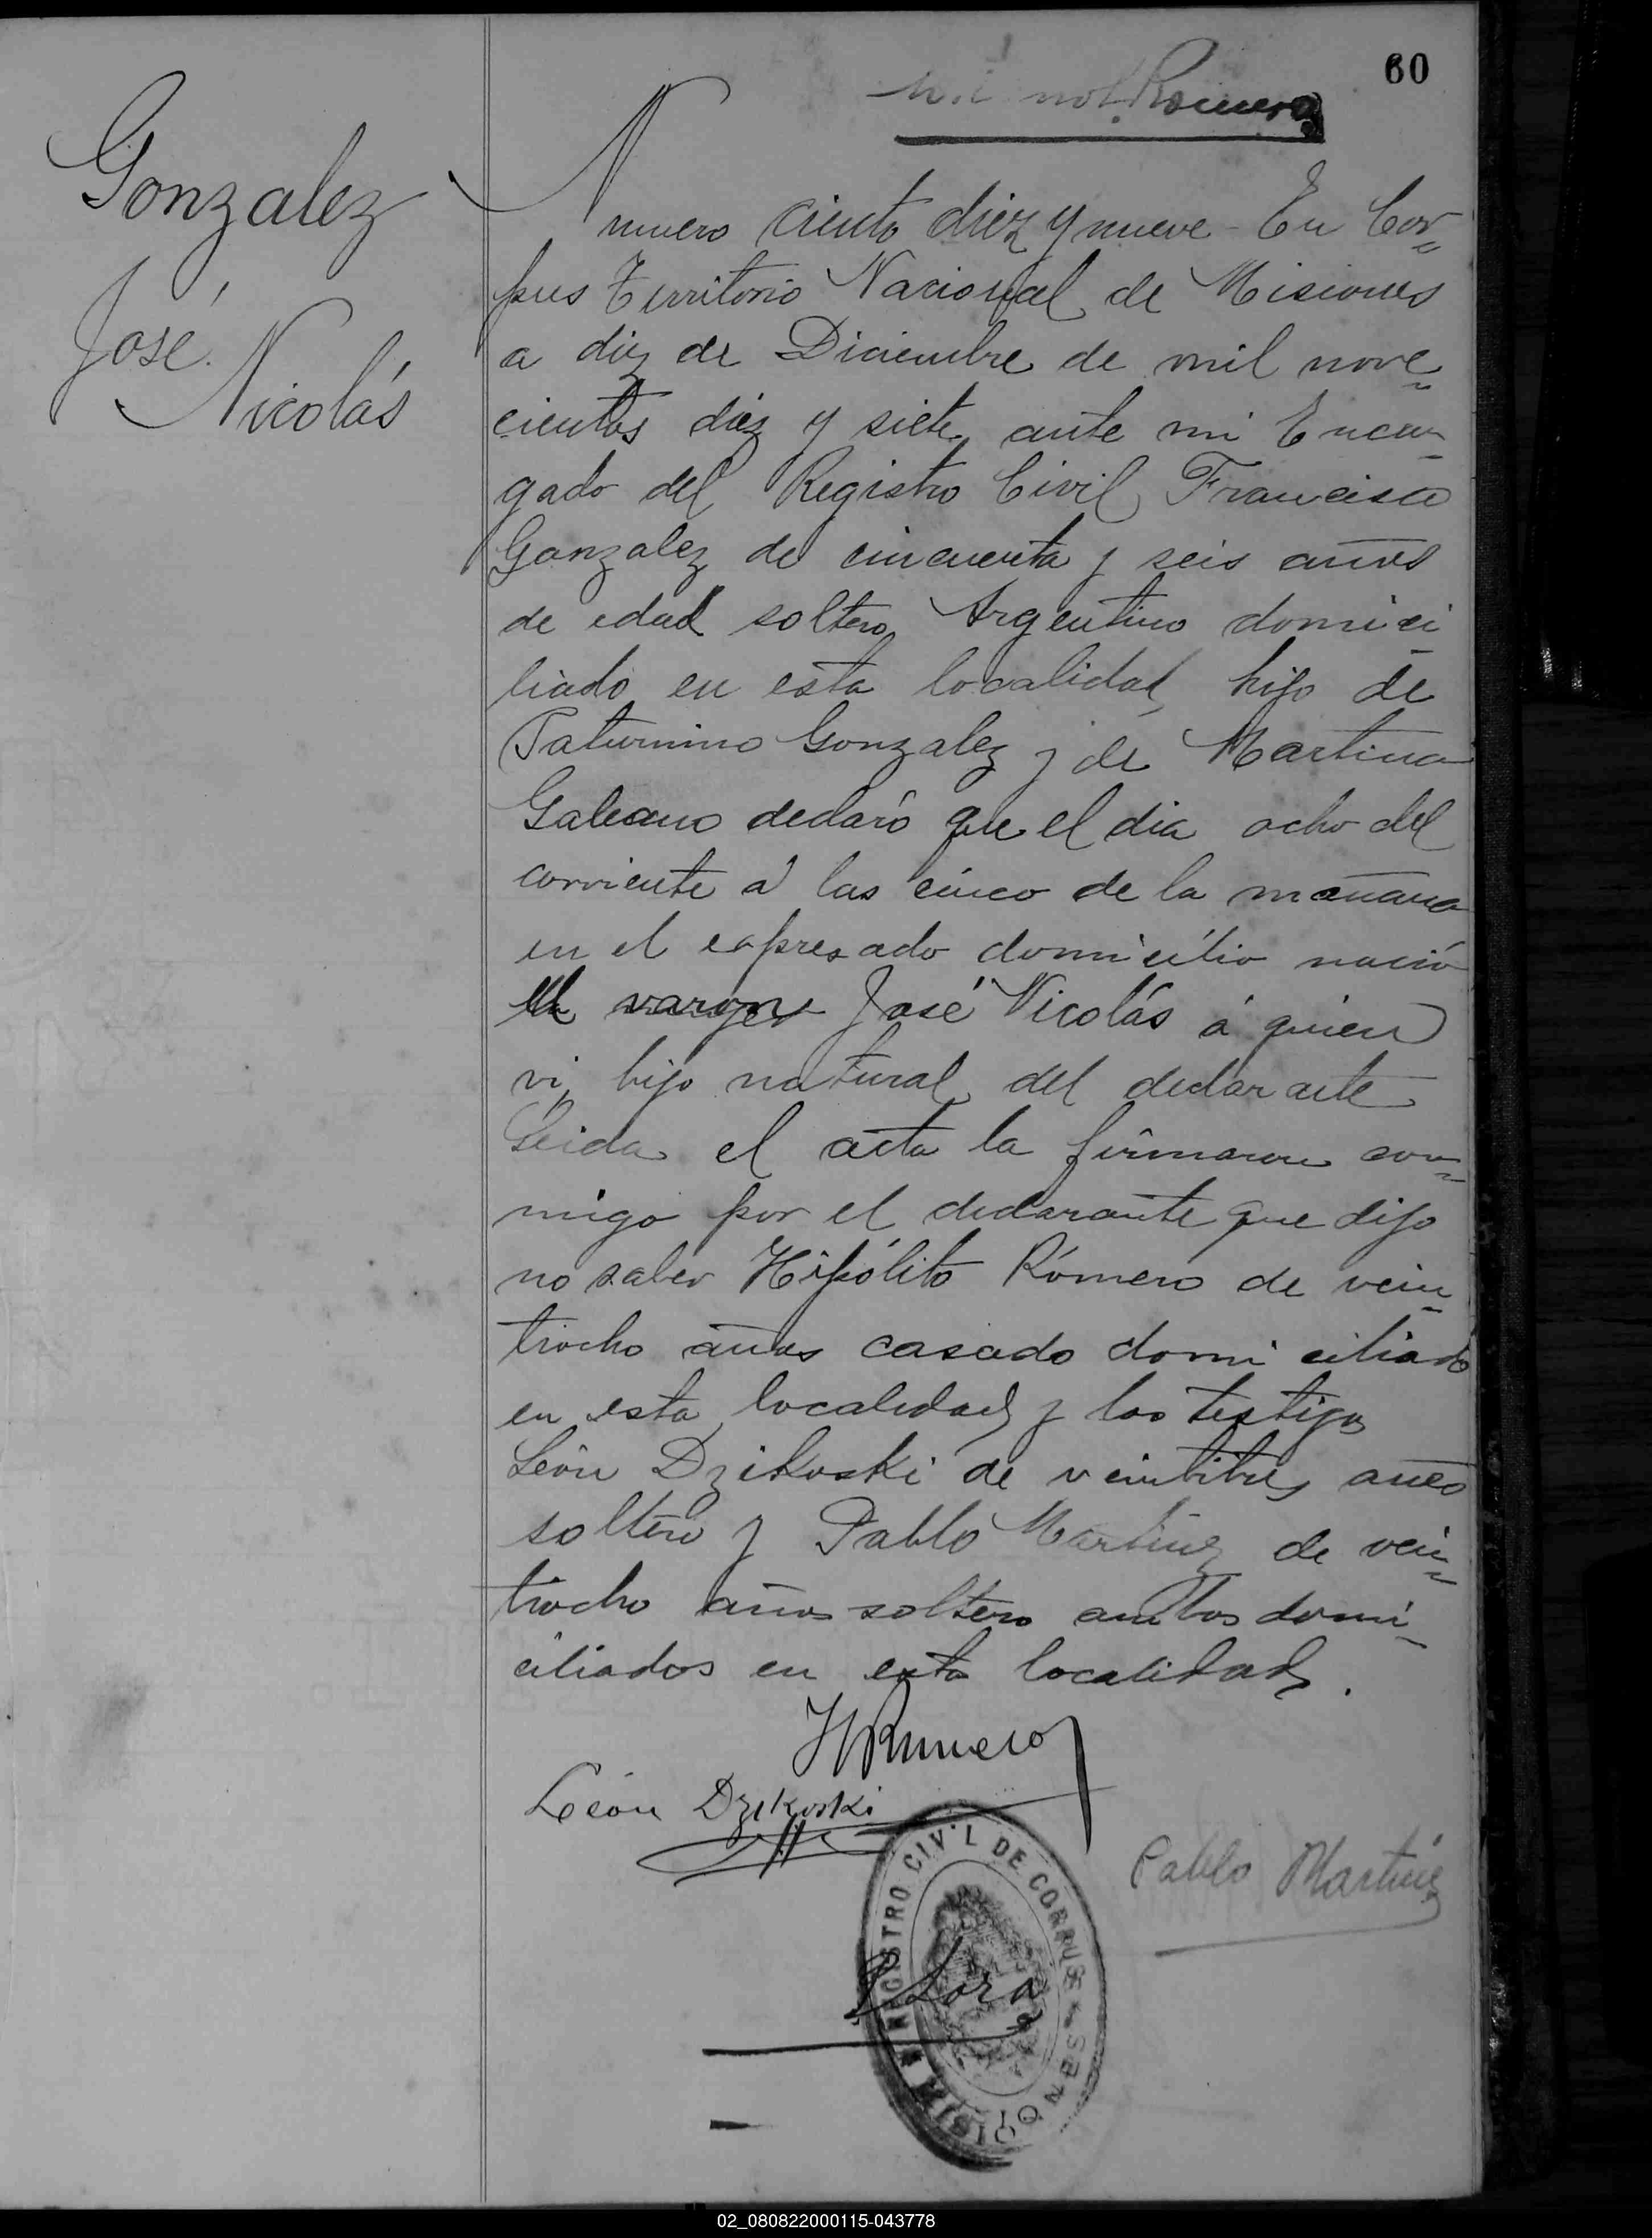 60
Romero
Gonzalez
José
Nicolás
Numero Ciento diez y nueve - En Cor=
pus Territorio Nacional de Misiones
a diez de Diciembre de mil nove=
cientos diez y siete, ante mi Encar=
gado del Registro Civil, Francisco
Gonzalez de cincuenta y seis años
de edad soltero, Argentino domici
liado en esta localidad, hijo de
Saturnino Gonzalez y de Martina
Galeano declaró que el dia ocho del
corriente á las cinco de la mañana
en el expresado domicilio nació
el varon José Nicolás á quien
vi, hijo natural del declarante
Leida el acta la firmaron con=
migo por el declarante que dijo
no saber Hipólito Rómero de vein=
tiocho años casado domiciliado
en esta localidad y los testigos
León Dzikoski de veintitres años
soltero y Pablo Martinez de vein=
tiocho años soltero ambos domi=
ciliados en esta localidad.
HRomero
León Dzikoski
Pablo Martinez
REGISTRO CIVIL DE CORPUS
MISIONES
Lora
02_080822000115-043778